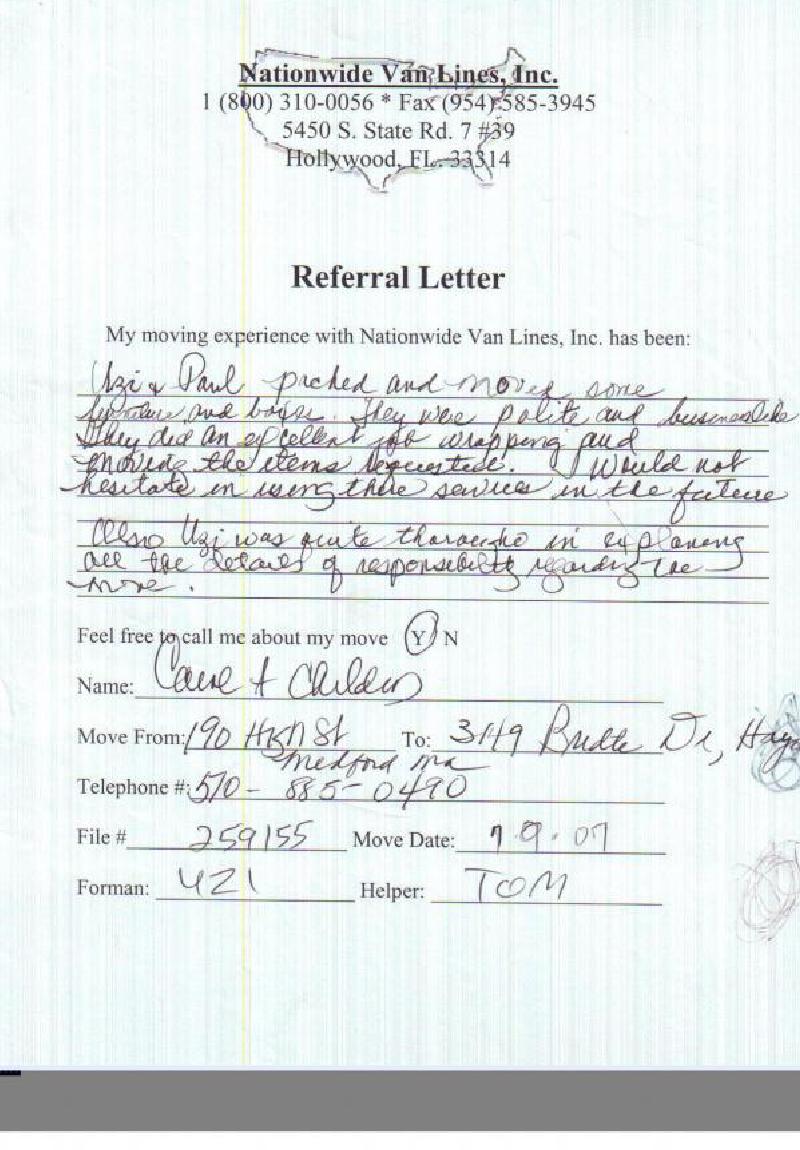 Nationwide Van Lines, Inc.
1 (800) 310-0056 * Fax (954) 585-3945
5450 S. State Rd. 7 #39
Hollywood, FL. 33314
Referral Letter
My moving experience with Nationwide Van Lines, Inc. has been:
Uzi & Paul packed and moved some
furniture and boxes. They were polite and businesslike
They did an excellent job wrapping and
moving the items requested. I would not
hesitate in using there services in the future
Also Uzi was quite in explaning
all the details of responsibility regarding the
move.
Feel free to call me about my move Y N
Name: Childers
Move From: 190 High St To: 3149 Dr,
Medford Ma
Telephone #: 570-885-0490
File # 259155 Move Date: 7.9.07
Forman: UZI Helper: TOM